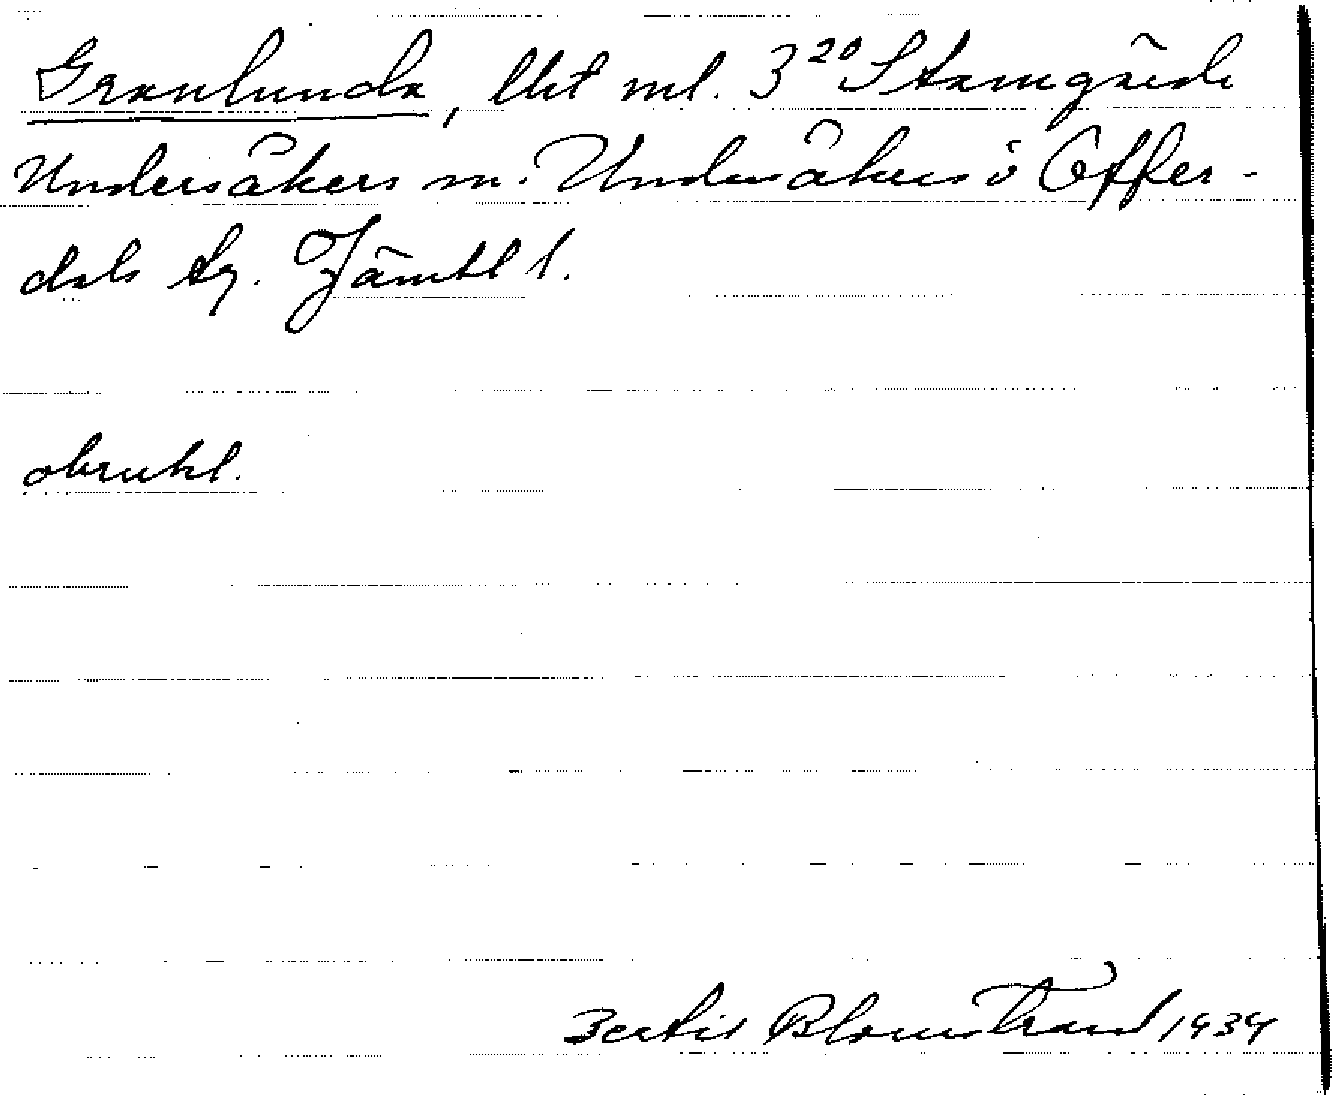 Granlunda, lht ml. 3²⁰ Stamgärde
Undersåkers sn. Undersåkers o Offer-
dals tg. Jämtl l.
obrukl.
Bertil Blomstrand 1934